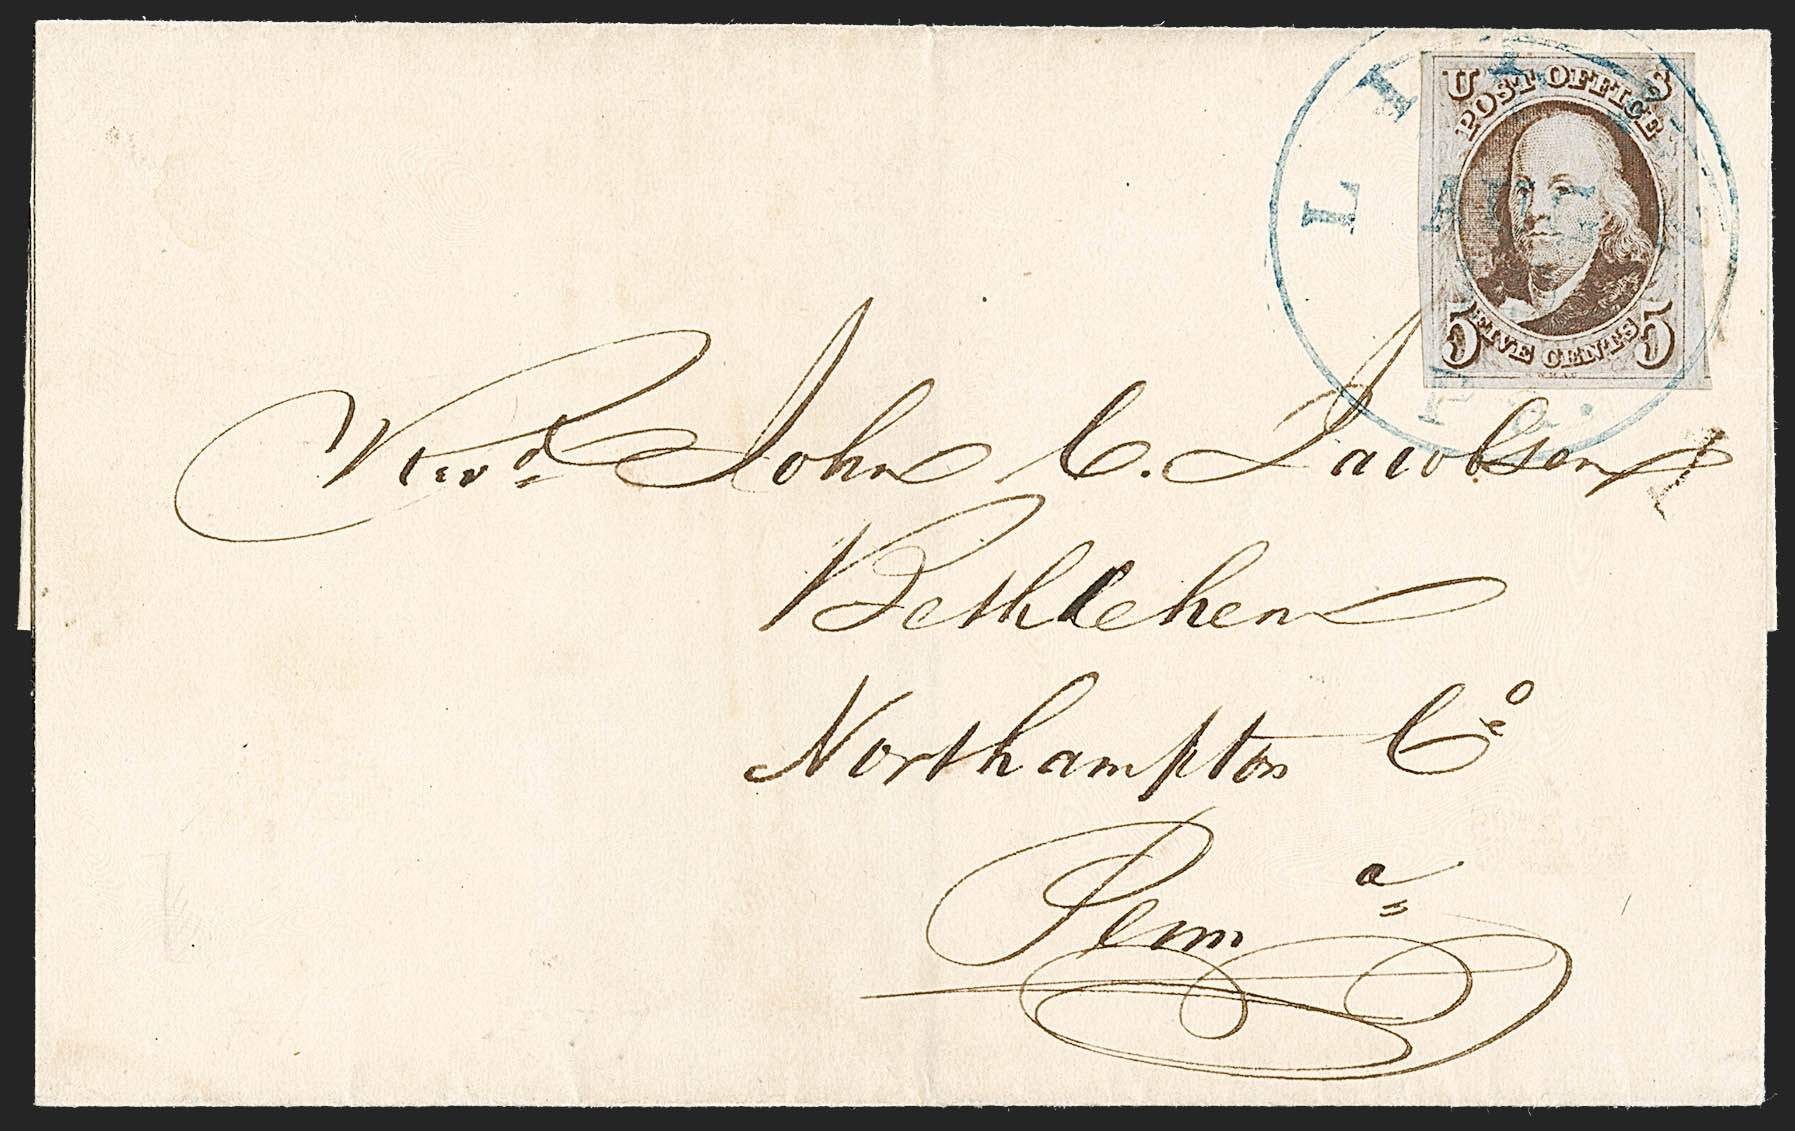 U S
POST OFFICE
5 FIVE CENTS 5
LITIZ
AUG
Pa.
Revd John C. Jacobson
Bethlehem
Northampton Co
Penna